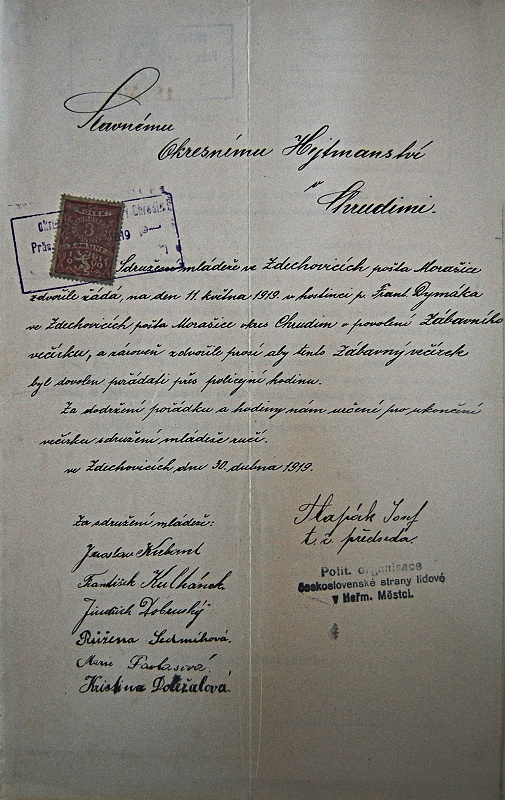 Slavnému
Okresnému Hejtmanství
v
Chrudimi.
3
1919
Sdružení mládeže ve Zdechovicích pošta Morašice
zdvořile žádá, na den 11. května 1919 v hostinci p. Frant. Dymáka
ve Zdechovicích pošta Morašice okres Chrudim o povolení Zábavního
večírku, a zároveň zdvořile prosí aby tento Zábavný večírek
byl dovolen pořádati přes policejní hodinu.
Za dodržení pořádku a hodiny nám určené pro ukončení
večírku sdružení mládeže ručí.
ve Zdechovicích dne 30. dubna 1919.
Za sdružení mládeže:
Jaroslav Kubant
František Kulhánek
Jindřich Dobenský
Růžena Sedmihová.
Marie
Kristina Doležalová.
Tlapák Josef
t. č. předseda.
Polit. organisace
československé strany lidové
v Heřm. Městci.